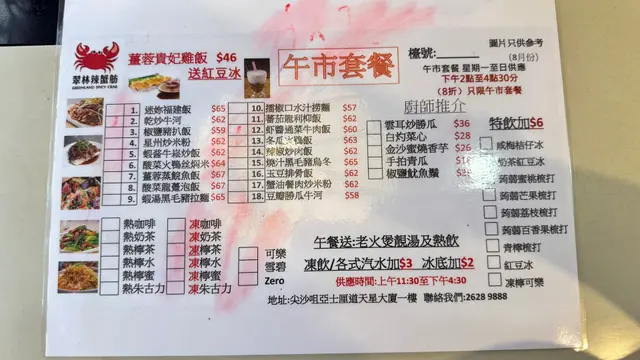 翠林辣蟹舫
GREENLAND SPICY CRAB
薑蓉貴妃雞飯 $46
送紅豆冰
午市套餐
檯號:
圖片只供參考
(8月份)
午市套餐 星期一至日供應
下午2點至4點30分
(8折) 只限午市套餐
1. 迷你福建飯 $65
2. 乾炒牛河 $65
3. 椒鹽豬扒飯 $59
4. 星州炒米粉 $62
5. 蝦醬牛崧炒飯 $62
6. 酸菜火鴨絲焗米 $64
7. 薑蓉蒸鯇魚飯 $67
8. 酸菜龍躉泡飯 $67
9. 蝦湯黑毛豬拉麵 $65
10. 擂椒口水汁撈麵 $57
11. 蕃茄龍利柳飯 $62
12. 蝦醬通菜牛肉飯 $60
13. 冬瓜火鴨飯 $63
14. 辣椒炒肉飯 $62
15. 燒汁黑毛豬烏冬 $65
16. 玉豆排骨飯 $62
17. 蟹治餐肉炒米粉 $62
18. 豆瓣勝瓜牛河 $58
廚師推介
雲耳炒勝瓜 $36
白灼菜心 $28
金沙蜜燒香芋 $26
手拍青瓜
椒鹽魷魚鬚
特飲加$6
咸梅桔仔冰
奶茶紅豆冰
蒟蒻蜜桃梳打
蒟蒻芒果梳打
蒟蒻荔枝梳打
蒟蒻百香果梳打
青檸梳打
紅豆冰
凍檸可樂
熱咖啡
熱奶茶
熱檸茶
熱檸水
熱檸蜜
熱朱古力
凍咖啡
凍奶茶
凍檸茶
凍檸水
凍檸蜜
凍朱古力
可樂
雪碧
Zero
午餐送:老火煲靚湯及熱飲
凍飲/各式汽水加$3 冰底加$2
供應時間:上午11:30至下午4:30
地址:尖沙咀亞士厘道天星大廈一樓 聯絡我們:2628 9888